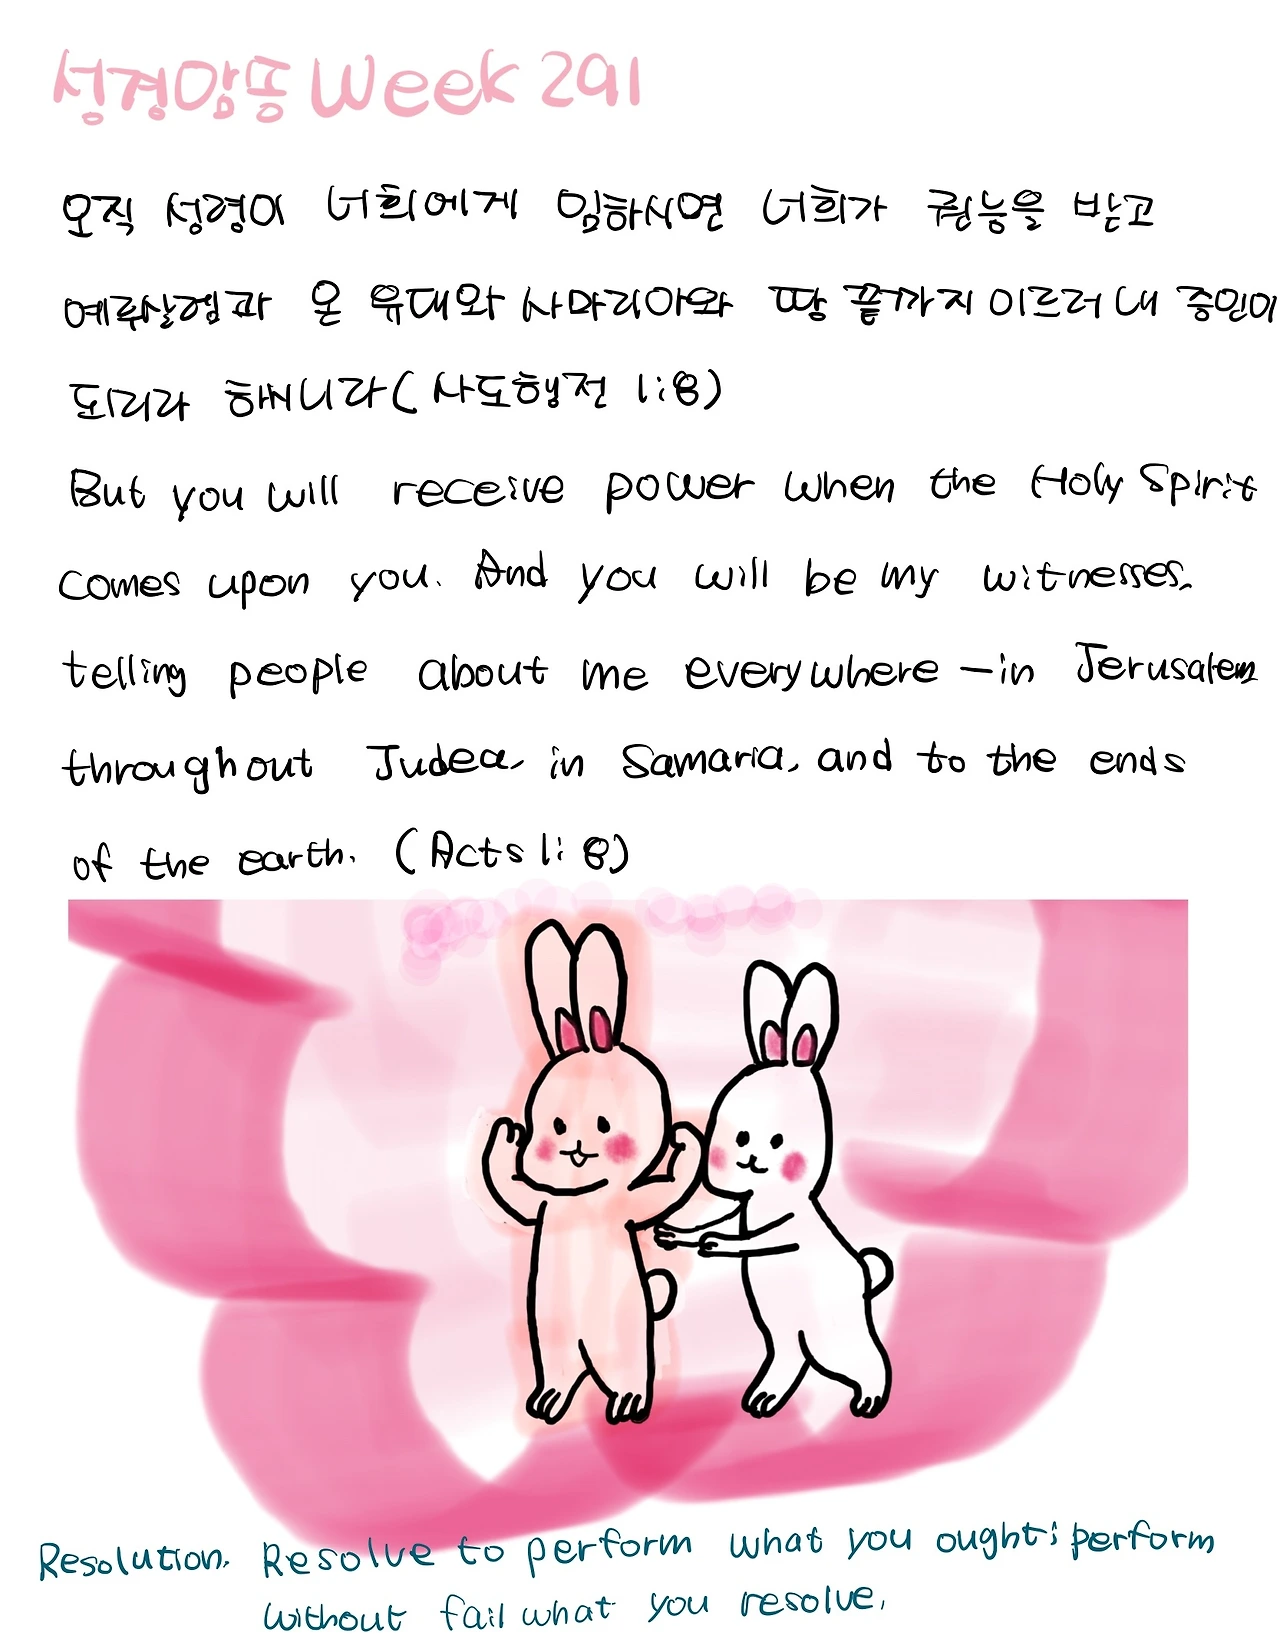 성경암송 Week 291
오직 성령이 너희에게 임하시면 너희가 권능을 받고
예루살렘과 온 유대와 사마리아와 땅 끝까지 이르러 내 증인이
되리라 하시니라 (사도행전 1:8)
But you will receive power when the Holy Spirit
comes upon you. And you will be my witnesses,
telling people about me everywhere -in Jerusalem
throughout Judea, in Samaria, and to the ends
of the earth. (Acts 1:8)
Resolution. Resolve to perform what you ought; perform
without fail what you resolve.